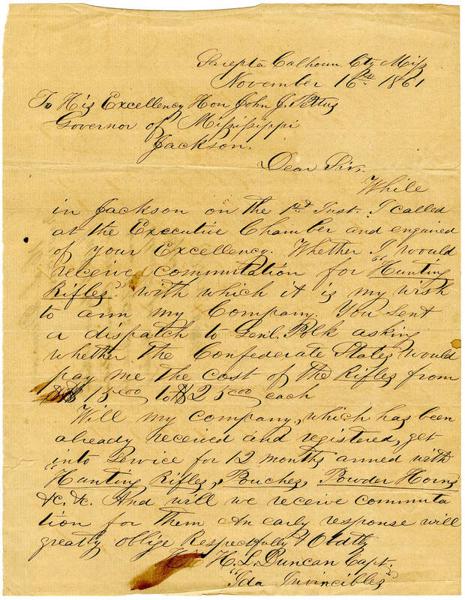 Sarepta Calhoun Cty Miss
November 16th 1861
To His Excellency Hon John J. Pettus
Governor of Mississippi
Jackson.
Dear Sir.
While
in Jackson on the 1st Inst. I called
at the Executive Chamber and enquired
of your Excellency. Whether I would
receive commutation for "Hunting
Rifles" with which it is my wish
to arm my Company. You sent
a dispatch to Genl. Polk asking
whether the Confederate States would
pay me the cost of the Rifles from
$15.00 to $25.00 each
Will my company, which has been
already received and registered, get
into service for 12 months armed with
"Hunting Rifles, Pouches, Powder Horns
&c. &. And will we receive commuta
tion for them An early response will
greatly oblige Respectfully &
H. L. Duncan Capt.
"Ida Invincibles"